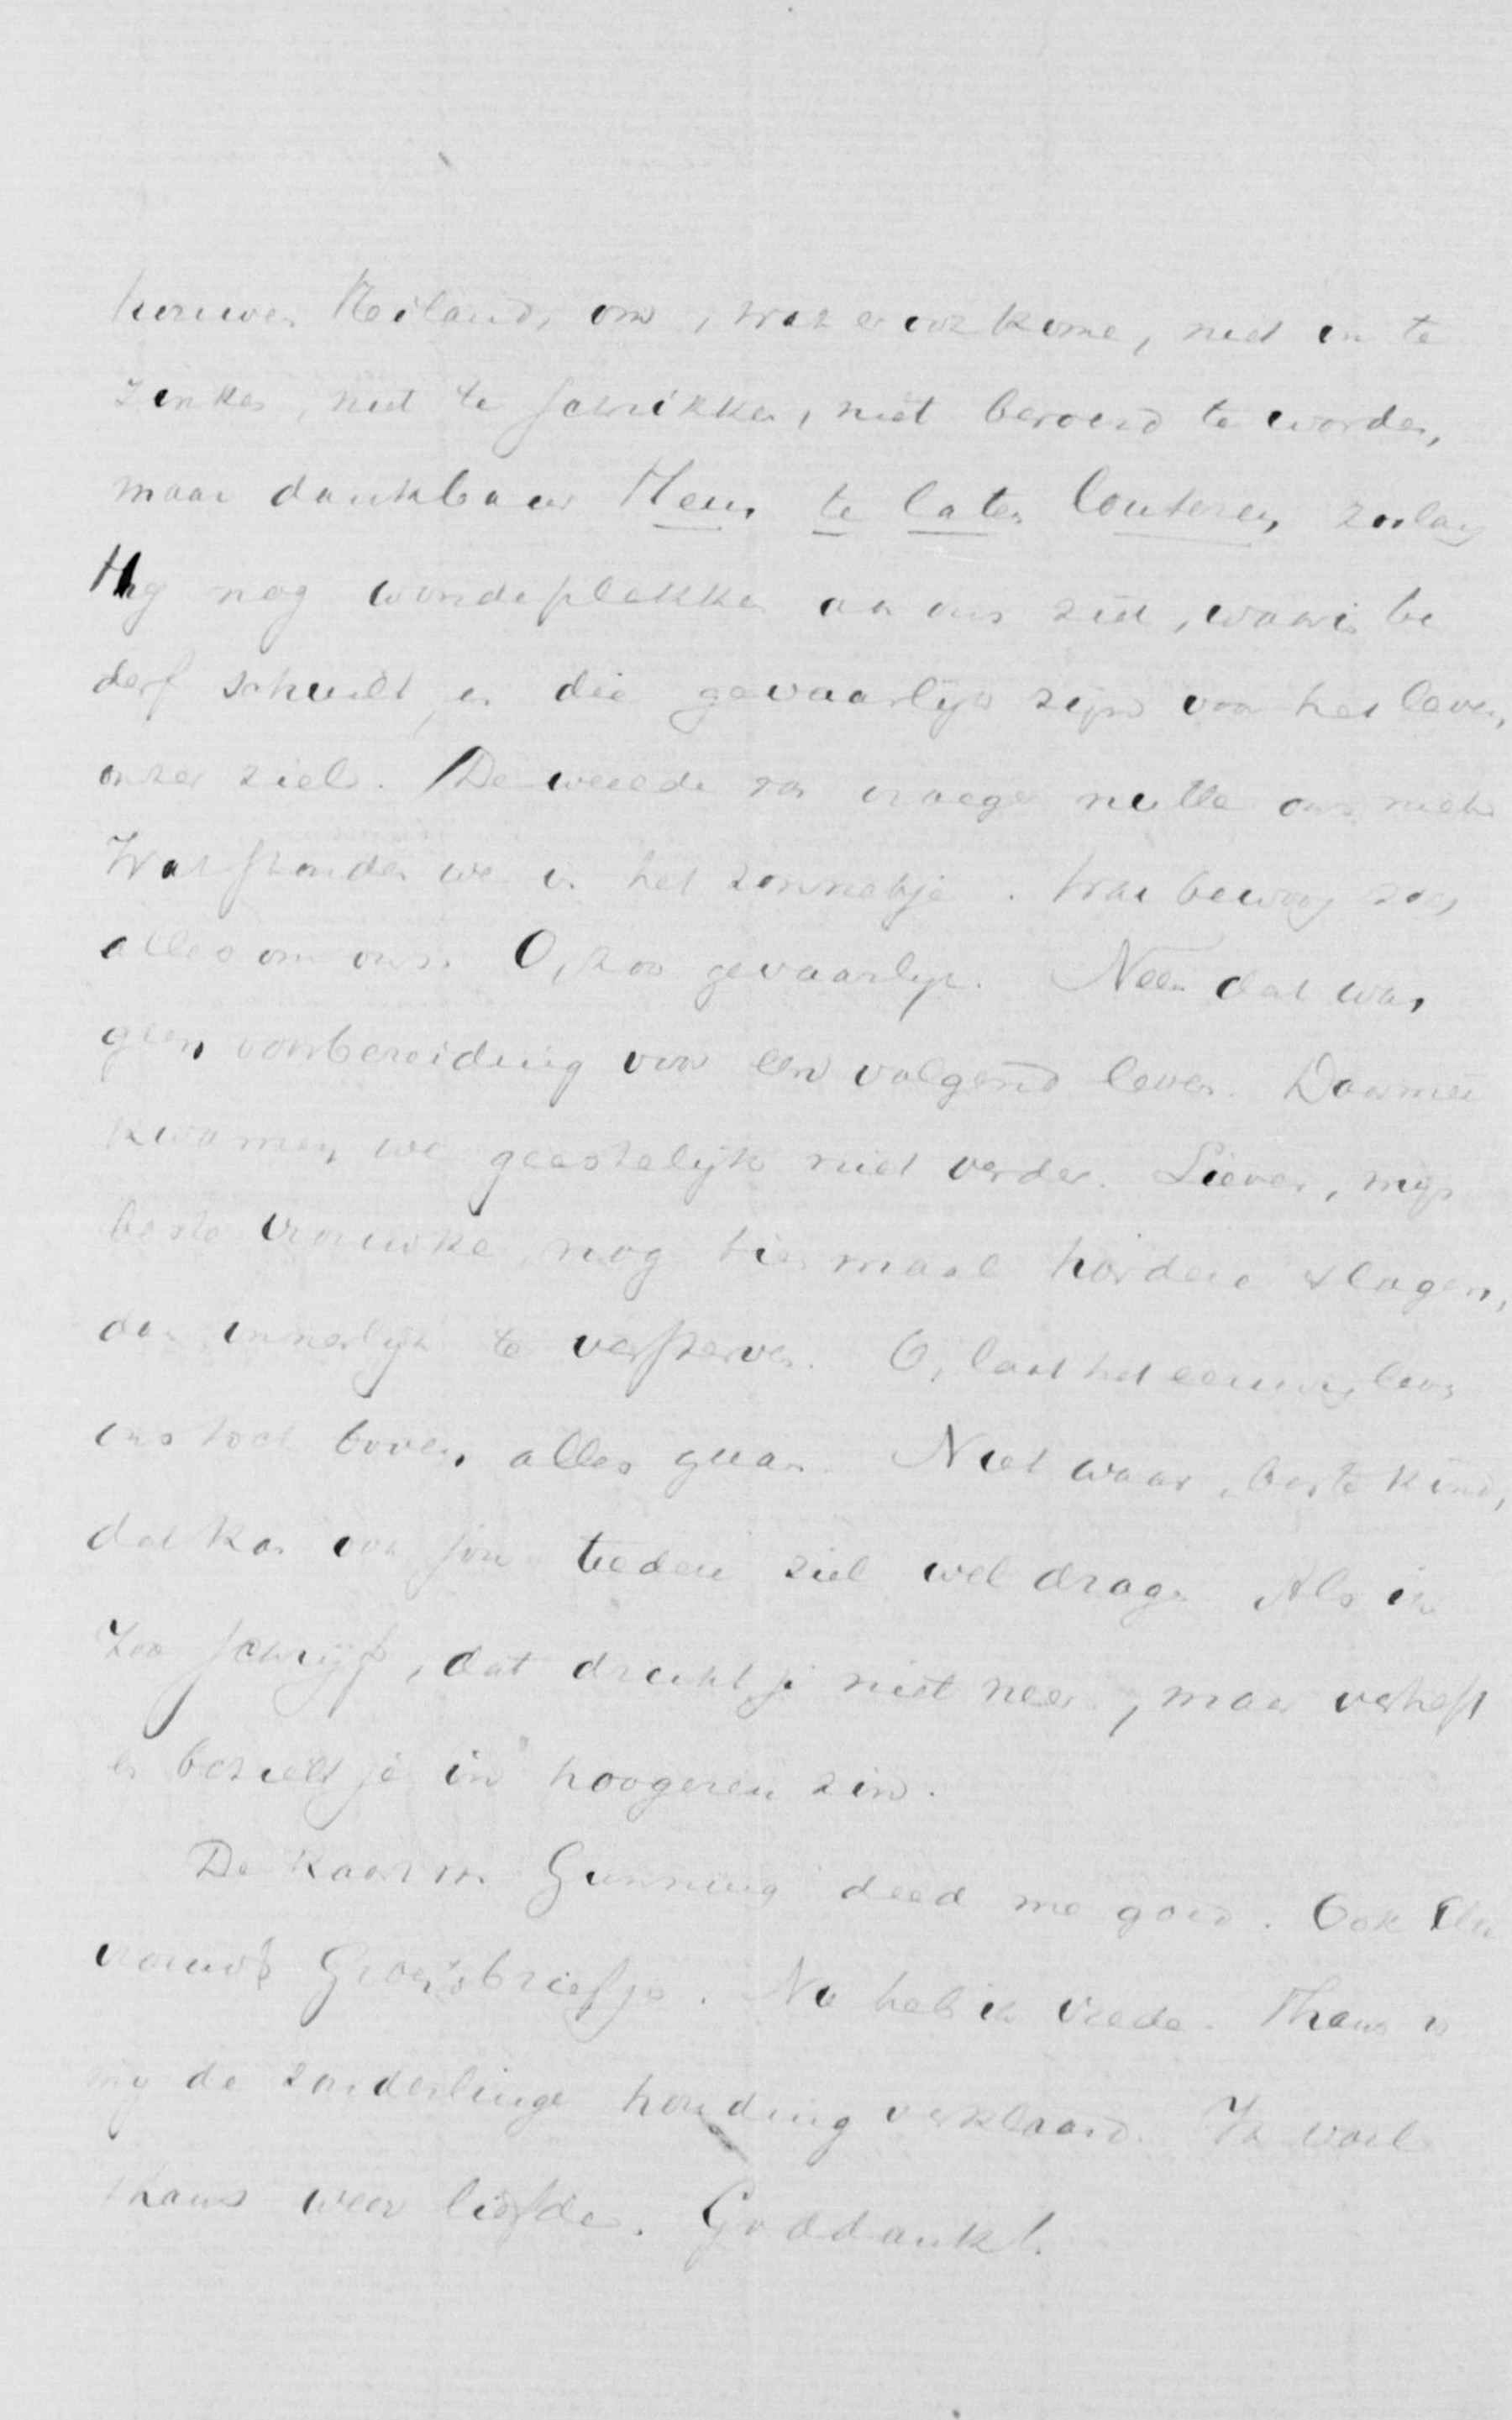 trouwen Heiland, om, wat er ook kome, niet in te
zinken, niet te schrikken, niet beroerd te worden,
maar dankbaar Hem te laten louteren, zoolang
Hij nog wondeplekken aan ons ziet, waarin be
derf schuilt, en die gevaarlijk zijn voor het leven
onzer ziel. De weelde van vroeger nutte ons niets
Wat stonden we in het zonnetje. Wat bewoog zoo
alles om ons. O, zoo gevaarlijk. Neen dat was
geen voorbereiding voor een volgend leven. Daarmeê
kwamen we geestelijk niet verder. Liever, mijn
beste vrouwke, nog tien maal hardere slagen,
dan innerlijk te versterven. O, laat het eeuwig leven
ons toch boven alles gaan. Niet waar, beste kind,
dat kan ook jou teedere ziel wel dragen. Als ik
zoo schrijf, dat drukt je niet neer, maar verheft
en bezielt je in hoogeren zin.
De kaart van Gunning deed me goed. Ook
vrouw Groen's briefje. Nu heb ik vrede. Thans is
mij de zonderlinge houding verklaard. Ik voel
thans weer liefde. Goddank!